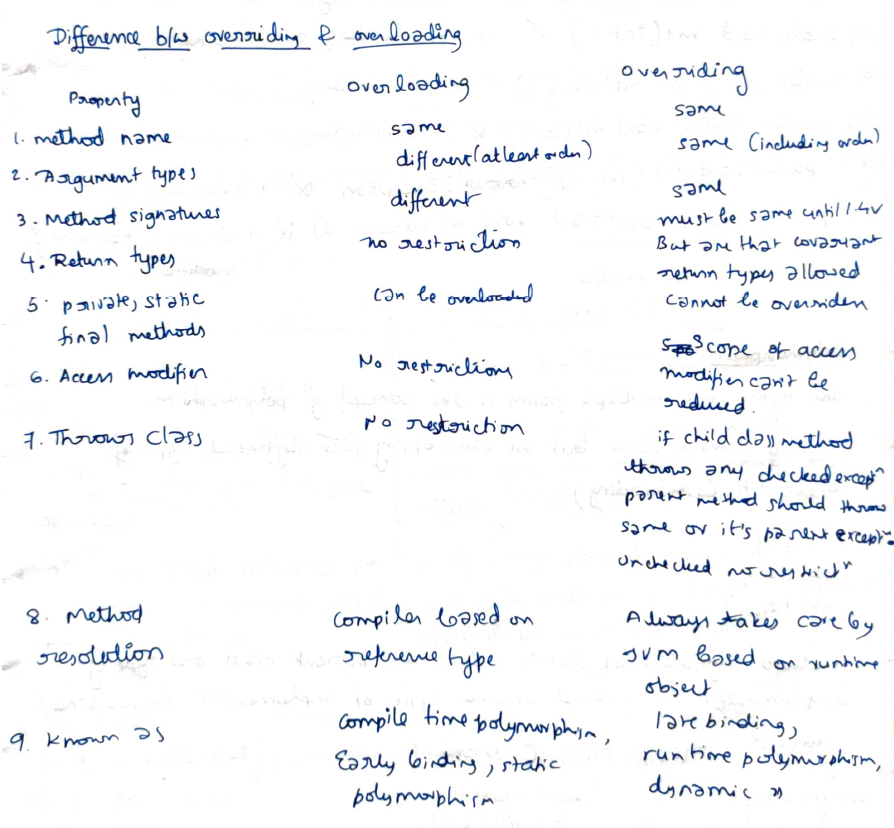 Difference b/w overriding & overloading
Property overloading overriding
1. method name same same
2. Argument types different (atleast order) same (including order)
3. Method signatures different same
4. Return types no restriction must be same until 1.4v
But that covariant
return types allowed
5. private, static can be overloaded cannot be overriden
final methods
6. Access modifier No restriction Scope of access
modifier can't be
reduced.
7. Throws Class No restriction if child class method
throws any checked exceptⁿ
parent method should throw
same or it's parent exceptⁿ.
unchecked no restrictⁿ
8. Method compiler based on Always takes care by
resolution reference type JVM based on runtime
object
9. Known as compile time polymorphism, late binding,
Early binding, static runtime polymorphism,
polymorphism dynamic "